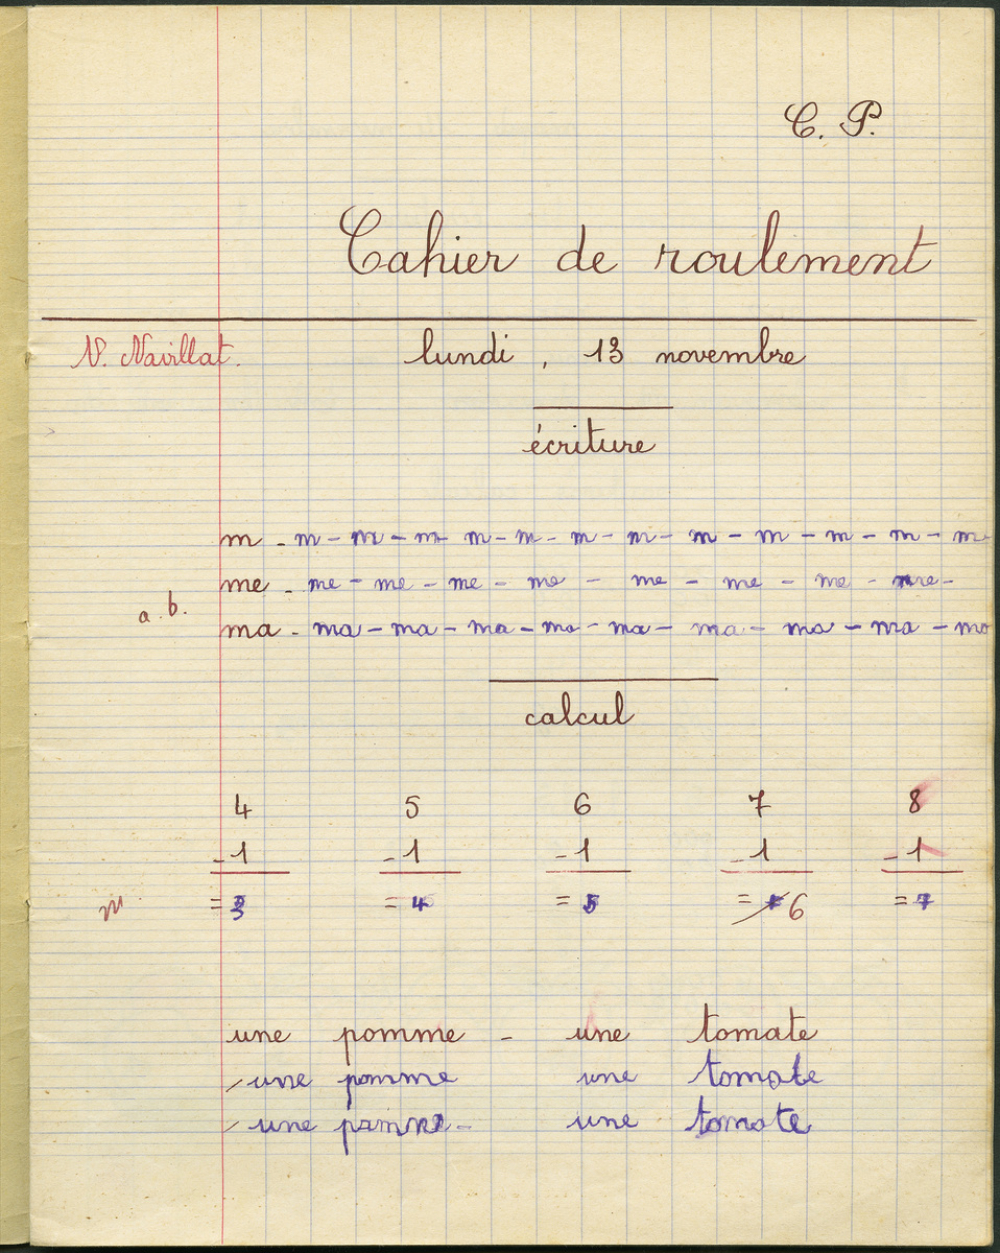 C. P.
Cahier de roulement
N. Navillat. lundi, 13 novembre
écriture
m - m - m - m - m - m - m - m - m - m - m - m - m
me - me - me - me - me - me - me - me - me -
a. b.
ma - ma - ma - ma - ma - ma - ma - ma - ma - ma
calcul
4 5 6 7 8
-1 -1 -1 -1 -1
m =3 =4 =5 = 6 =7
une pomme - une tomate
une pomme une tomate
une pomme - une tomate